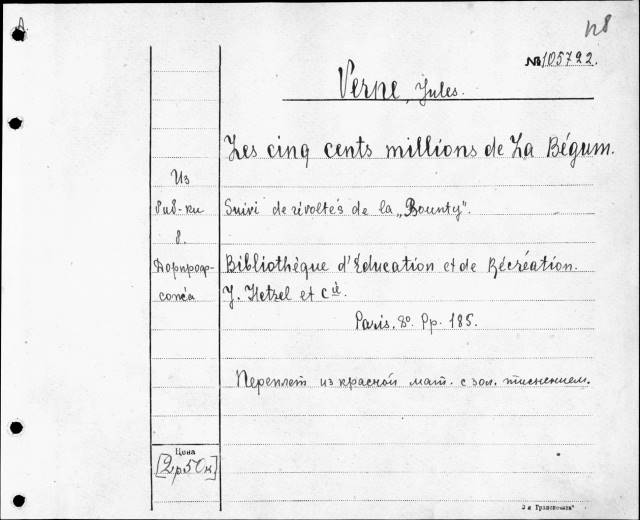 № 105722.
Verne, Jules.
Les cinq cents millions de La Bégum.
Из
биб-ки
Suivi de révoltés de la „Bounty".
в.
Дорпроф-
Bibliothèque d'Education et de Récréation.
сожа
J. Hetzel et Cie.
Paris. 8º. Pp. 185.
Переплет из красной мат. с зол. тиснением.
Цена
[2р50к]